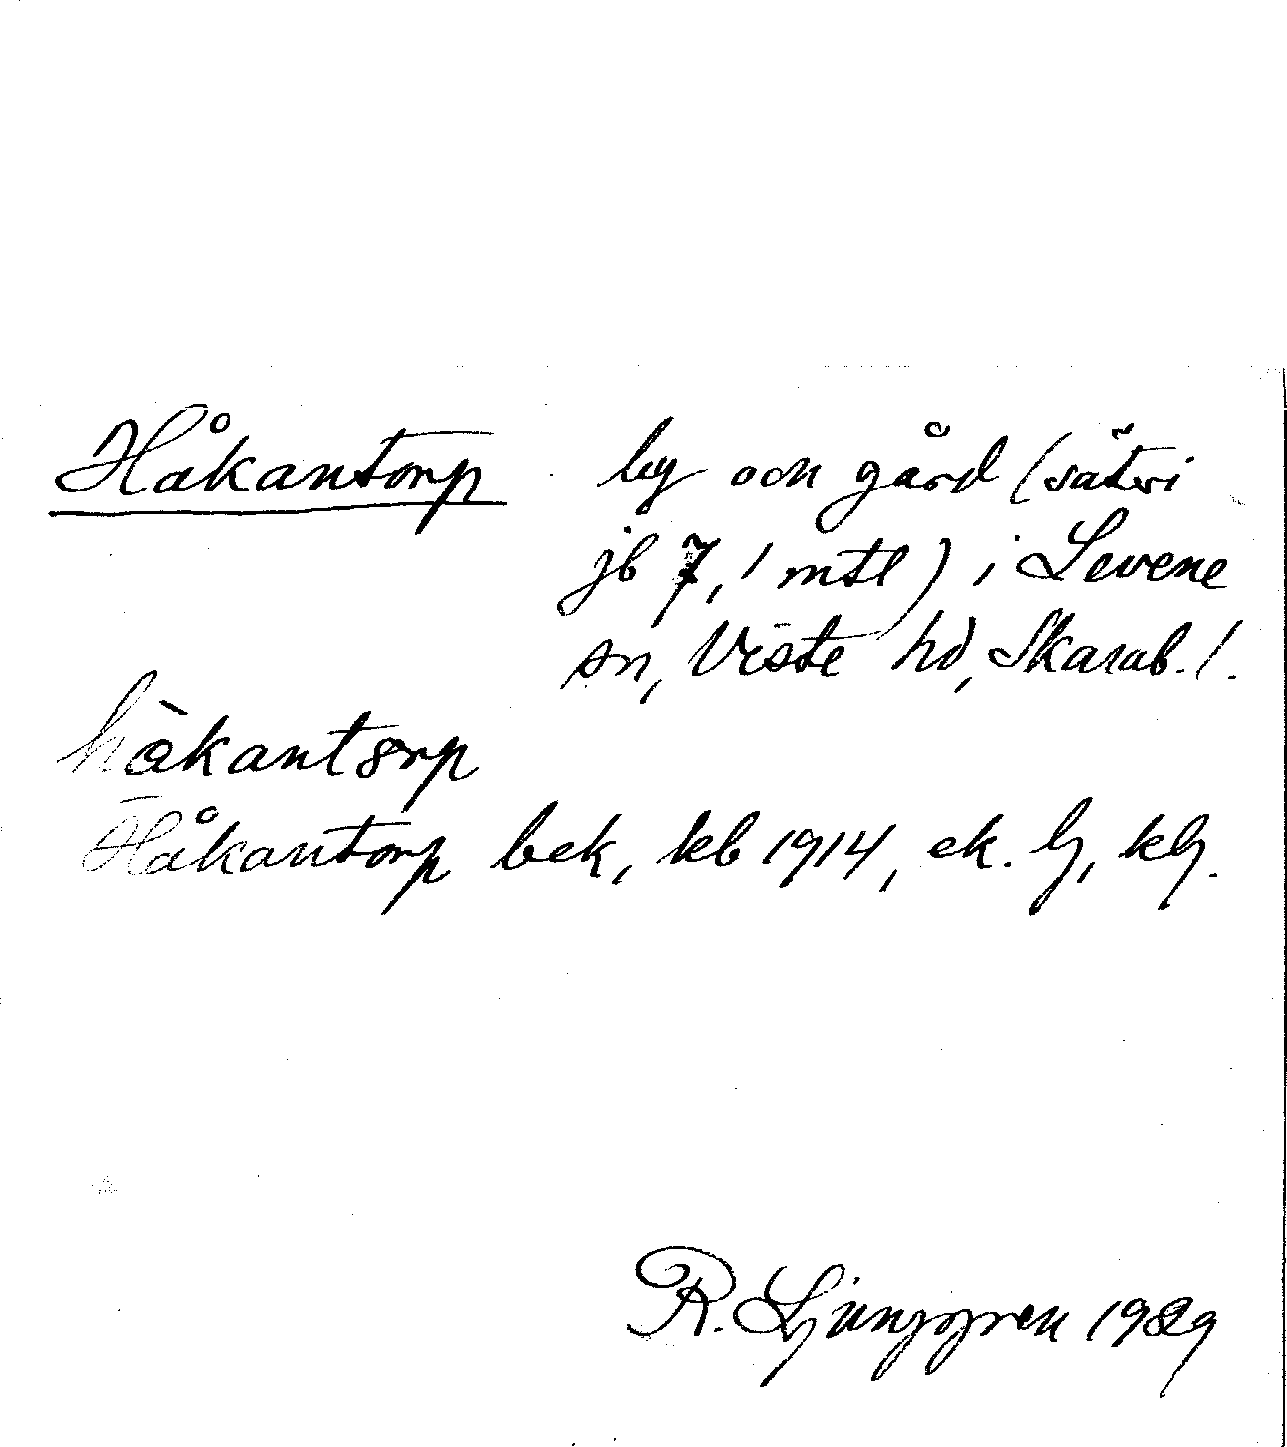 Håkantorp by och gård (säteri
jb 7, 1 mtl) i Levene
sn, Viste hd, Skarab. l.
hàkantorp
Håkantorp bek, kb 1914, ek.
R. Ljunggren 1929